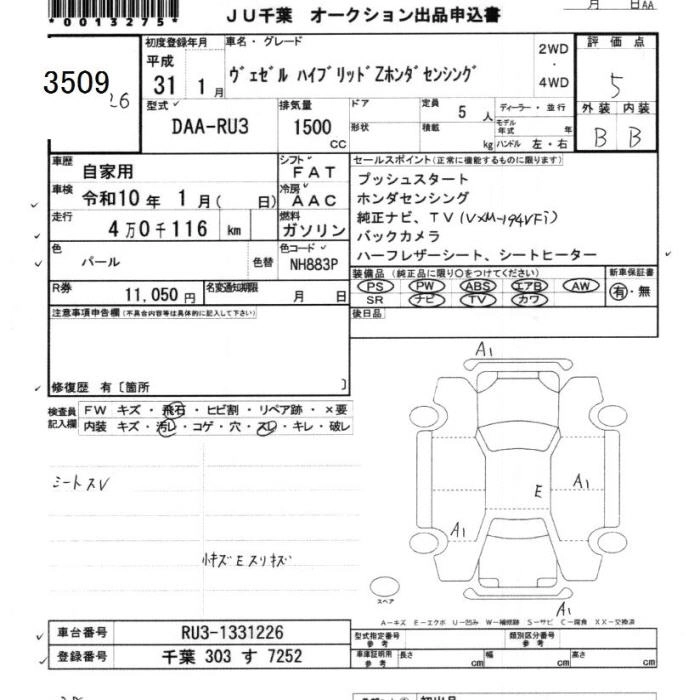 *0013275*
JU千葉 オークション出品申込書
月 日AA
3509
26
初度登録年月
平成
31 1月
車名・グレード
ヴェゼル ハイブリッドZホンダセンシング
2WD
・
4WD
評価点
5
外装 内装
B B
型式
DAA-RU3
排気量
1500
CC
ドア
形状
定員 5 人
積載 kg
ディーラー・並行
モデル年式 年
ハンドル 左・右
車歴 自家用
車検 令和10年 1月( 日)
走行 4万0千116 km
色 パール 色替
シフト FAT
冷房 AAC
燃料 ガソリン
色コード NH883P
R券 11,050円
名変通知期限 月 日
セールスポイント(正常に機能するものに限ります)
プッシュスタート
ホンダセンシング
純正ナビ、TV(VXM-194VFi)
バックカメラ
ハーフレザーシート、シートヒーター
装備品(純正品に限り○をつけてください)
PS PW ABS エアB AW
SR ナビ TV カワ
新車保証書
有・無
後日品
注意事項申告欄(不具合内容等は具体的に記入して下さい)
修復歴 有〔箇所 〕
検査員記入欄
FW キズ・飛石・ヒビ割・リペア跡・×要
内装 キズ・汚レ・コゲ・穴・スレ・キレ・破レ
シートスレ
小キズEスリキズ
A1
E A1
A1
A1
スペア
A−キズ E−エクボ U−凹み W−補修跡 S−サビ C−腐食 XX−交換済
車台番号 RU3-1331226
登録番号 千葉 303 す 7252
型式指定番号 参考
類別区分番号 参考
車庫証明用 参考 長さ cm 幅 cm 高さ cm